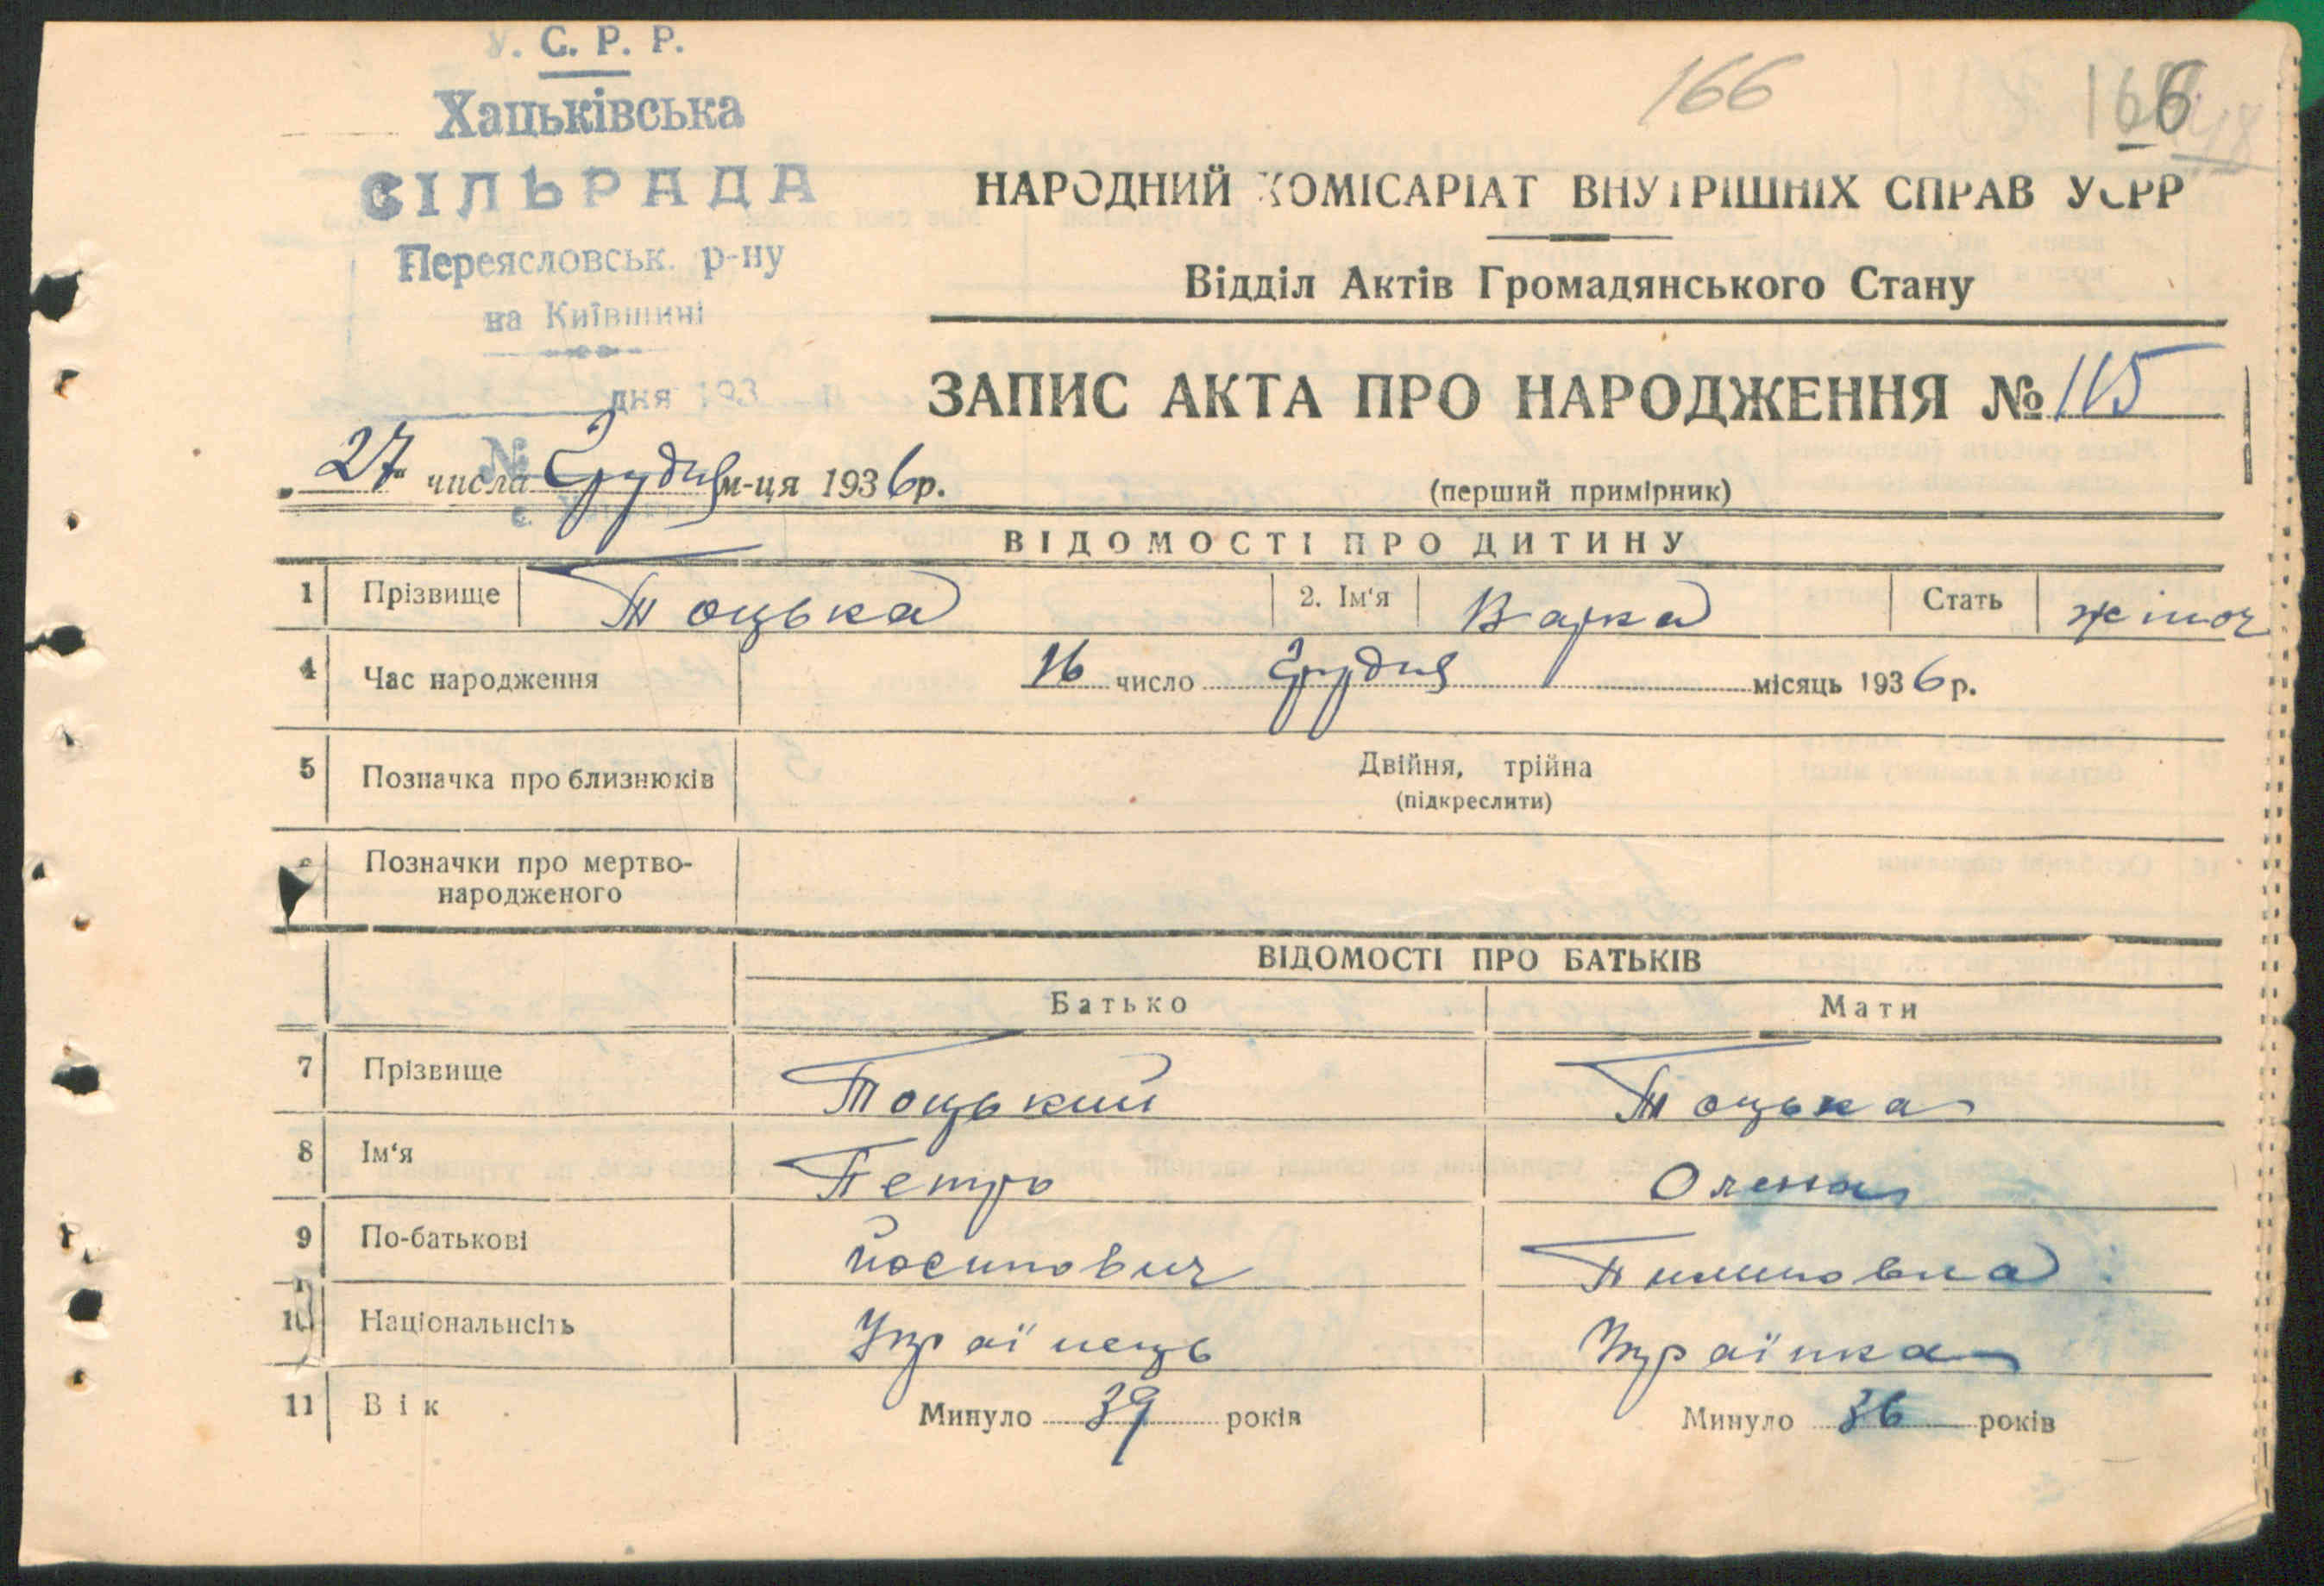 У. С. Р. Р.
Хацьківська
СІЛЬРАДА
Переясловськ. р-ну
на Київщині
дня 193
№
166
166
НАРОДНИЙ КОМІСАРІАТ ВНУТРІШНІХ СПРАВ УСРР
Відділ Актів Громадянського Стану
ЗАПИС АКТА ПРО НАРОДЖЕННЯ № 115
27 числа Грудня м-ця 1936 р.
(перший примірник)
ВІДОМОСТІ ПРО ДИТИНУ
1 Прізвище Тоцька 2. Ім'я Варка Стать жіноч
4 Час народження 16 число Грудня місяць 1936 р.
5 Позначка про близнюків Двійня, трійна
(підкреслити)
6 Позначки про мертво-
народженого
ВІДОМОСТІ ПРО БАТЬКІВ
Батько Мати
7 Прізвище Тоцький Тоцька
8 Ім'я Петро Олена
9 По-батькові Йосипович Пилиповна
10 Національнсіть Українець Українка
11 Вік Минуло 39 років Минуло 36 років